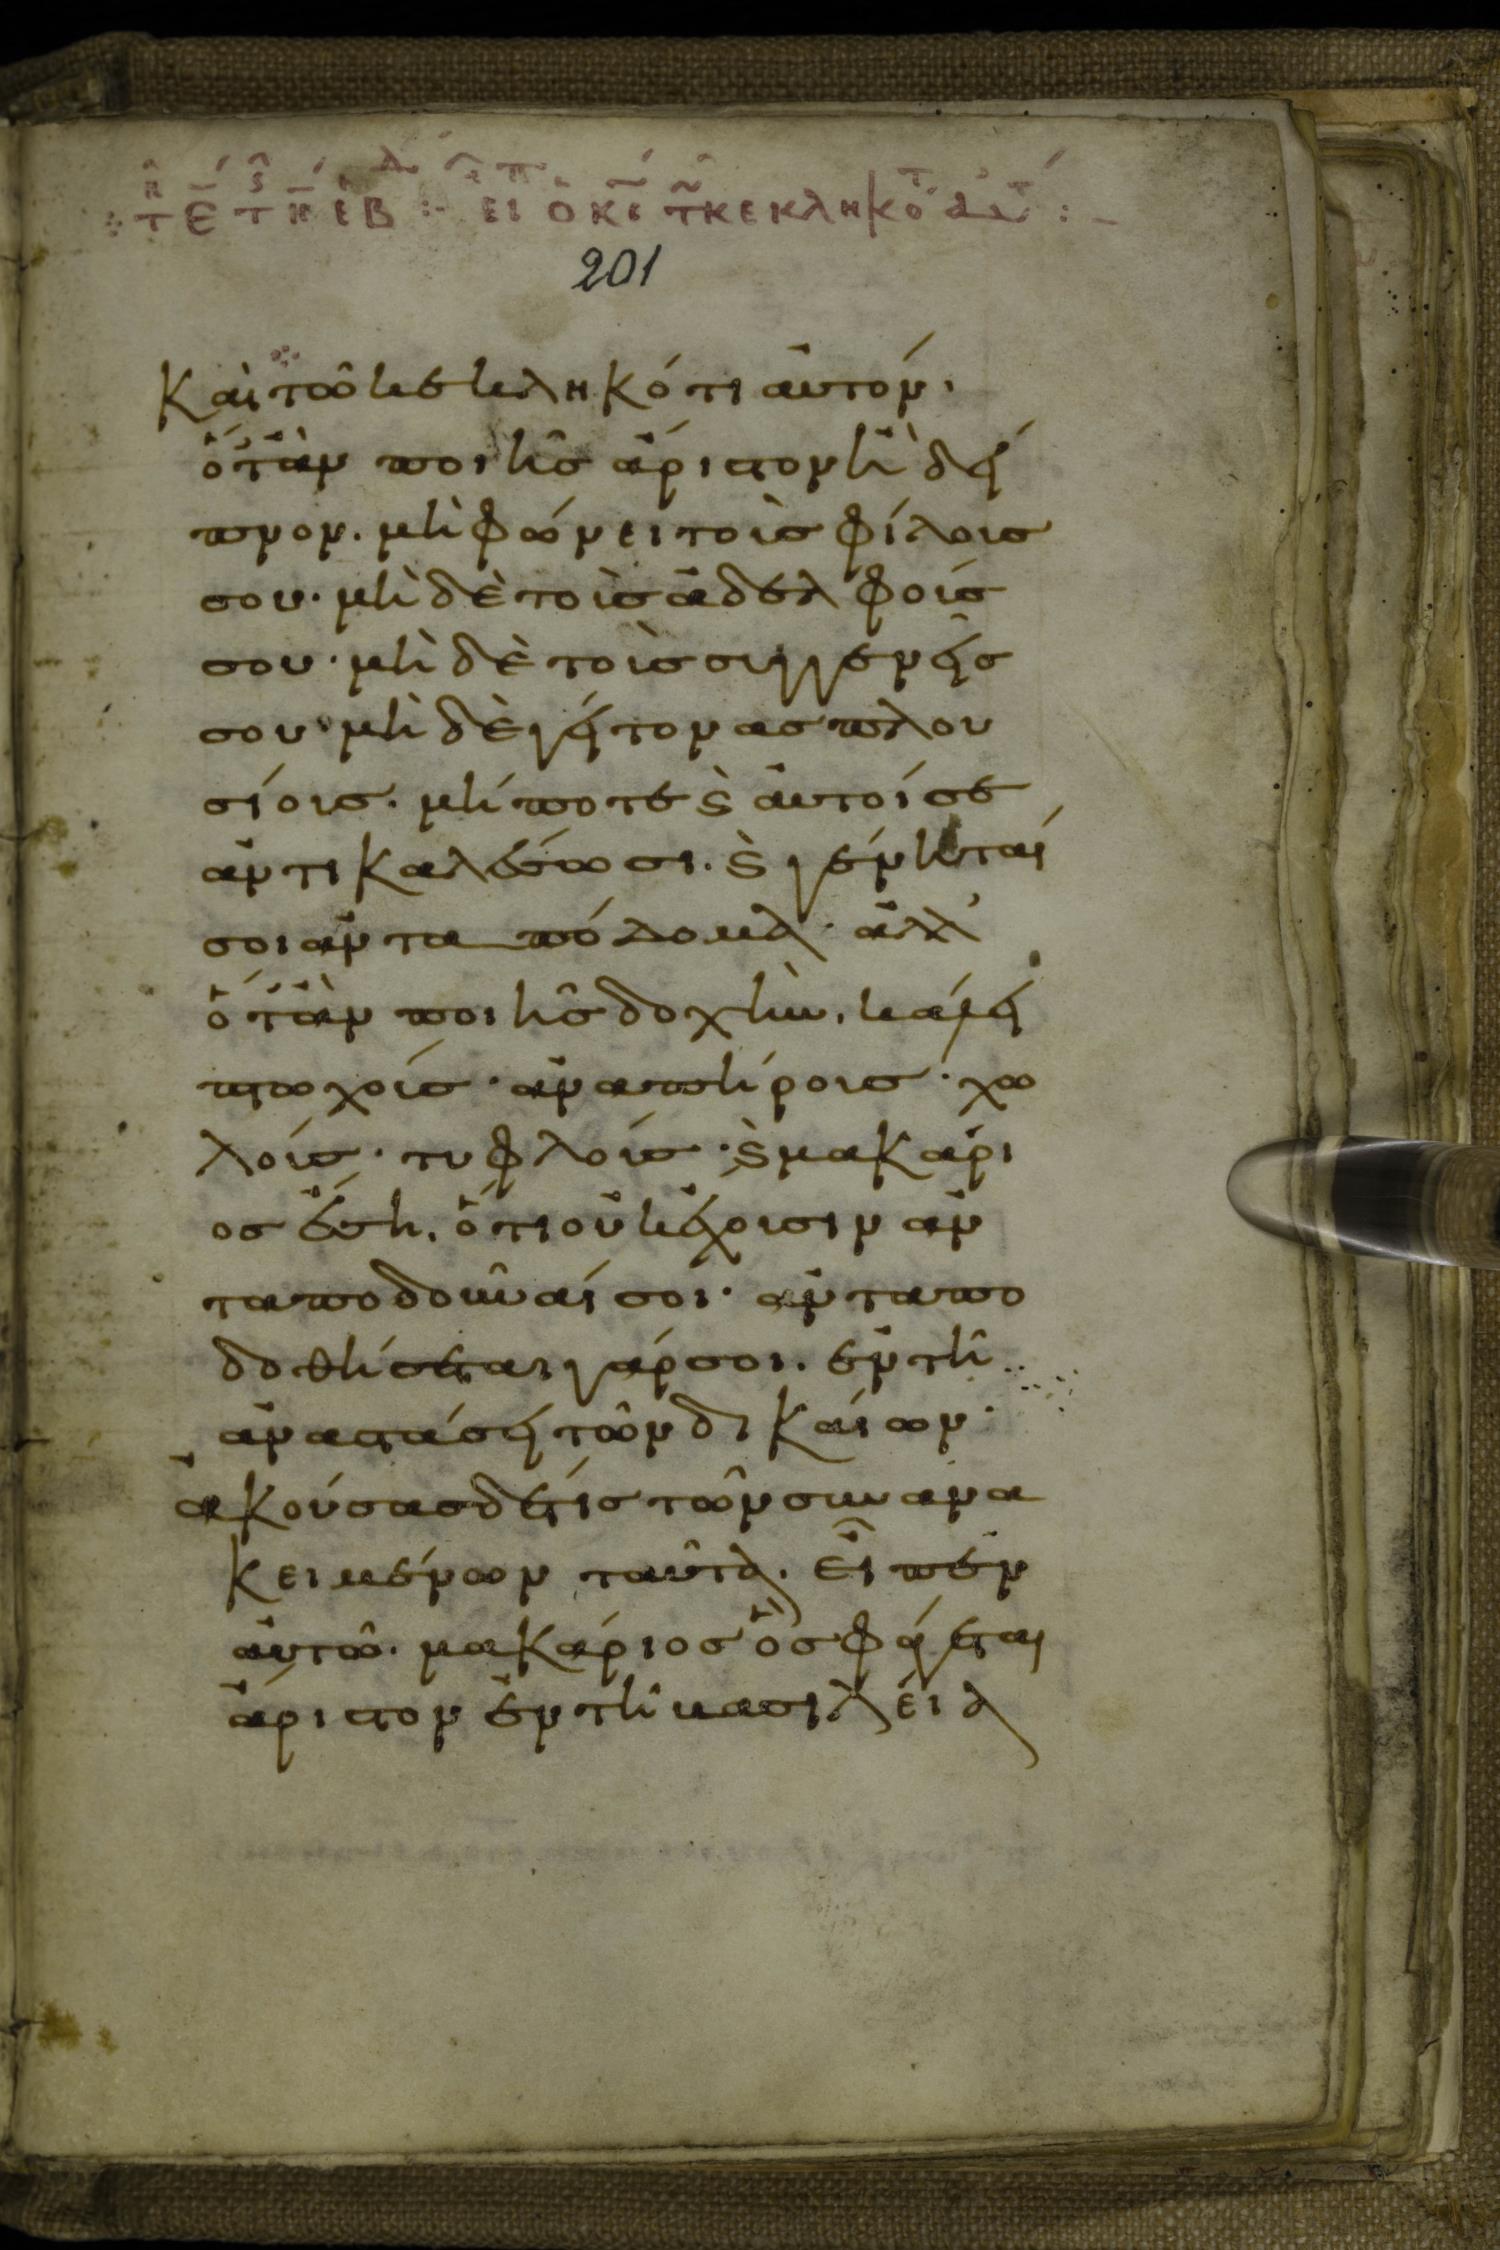 201
Καὶ τῶ κεκληκότι αὐτόν.
ὅτὰν ποιῆσ ἄριστον ἢ δεῖ
πνον. μὴ φώνει τοὺσ φίλουσ
σου· μὴ δὲ τοὺσ ἀδελφούσ
σου· μὴ δὲ τοὺσ συγγενεῖσ
σου· μὴ δὲ γείτονασ πλου
σίουσ. μήποτε ϗ αὐτοί σε
ἀντικαλέσωσι. ϗ γένηταί
σοι ἀνταπόδομα· ἀλλ'
ὅτὰν ποιῆσ δοχὴν, κάλει
πτωχούσ· ἀναπήρουσ· χω
λούσ· τυφλούσ· ϗ μακάρι
οσ ἔση, ὅτι οὐκ ἔχουσιν ἀν
ταποδοῦναί σοι· ἀνταπο
δοθήσεται γάρ σοι. ἐν τῆ
ἀναστάσει τῶν δικαίων·
ἀκούσασ δέ τισ τῶν συνανα
κειμένων ταῦτα. εἶπεν
αὐτῶ. μακάριοσ ὅσ φάγεται
ἄριστον ἐν τῆ βασιλεία